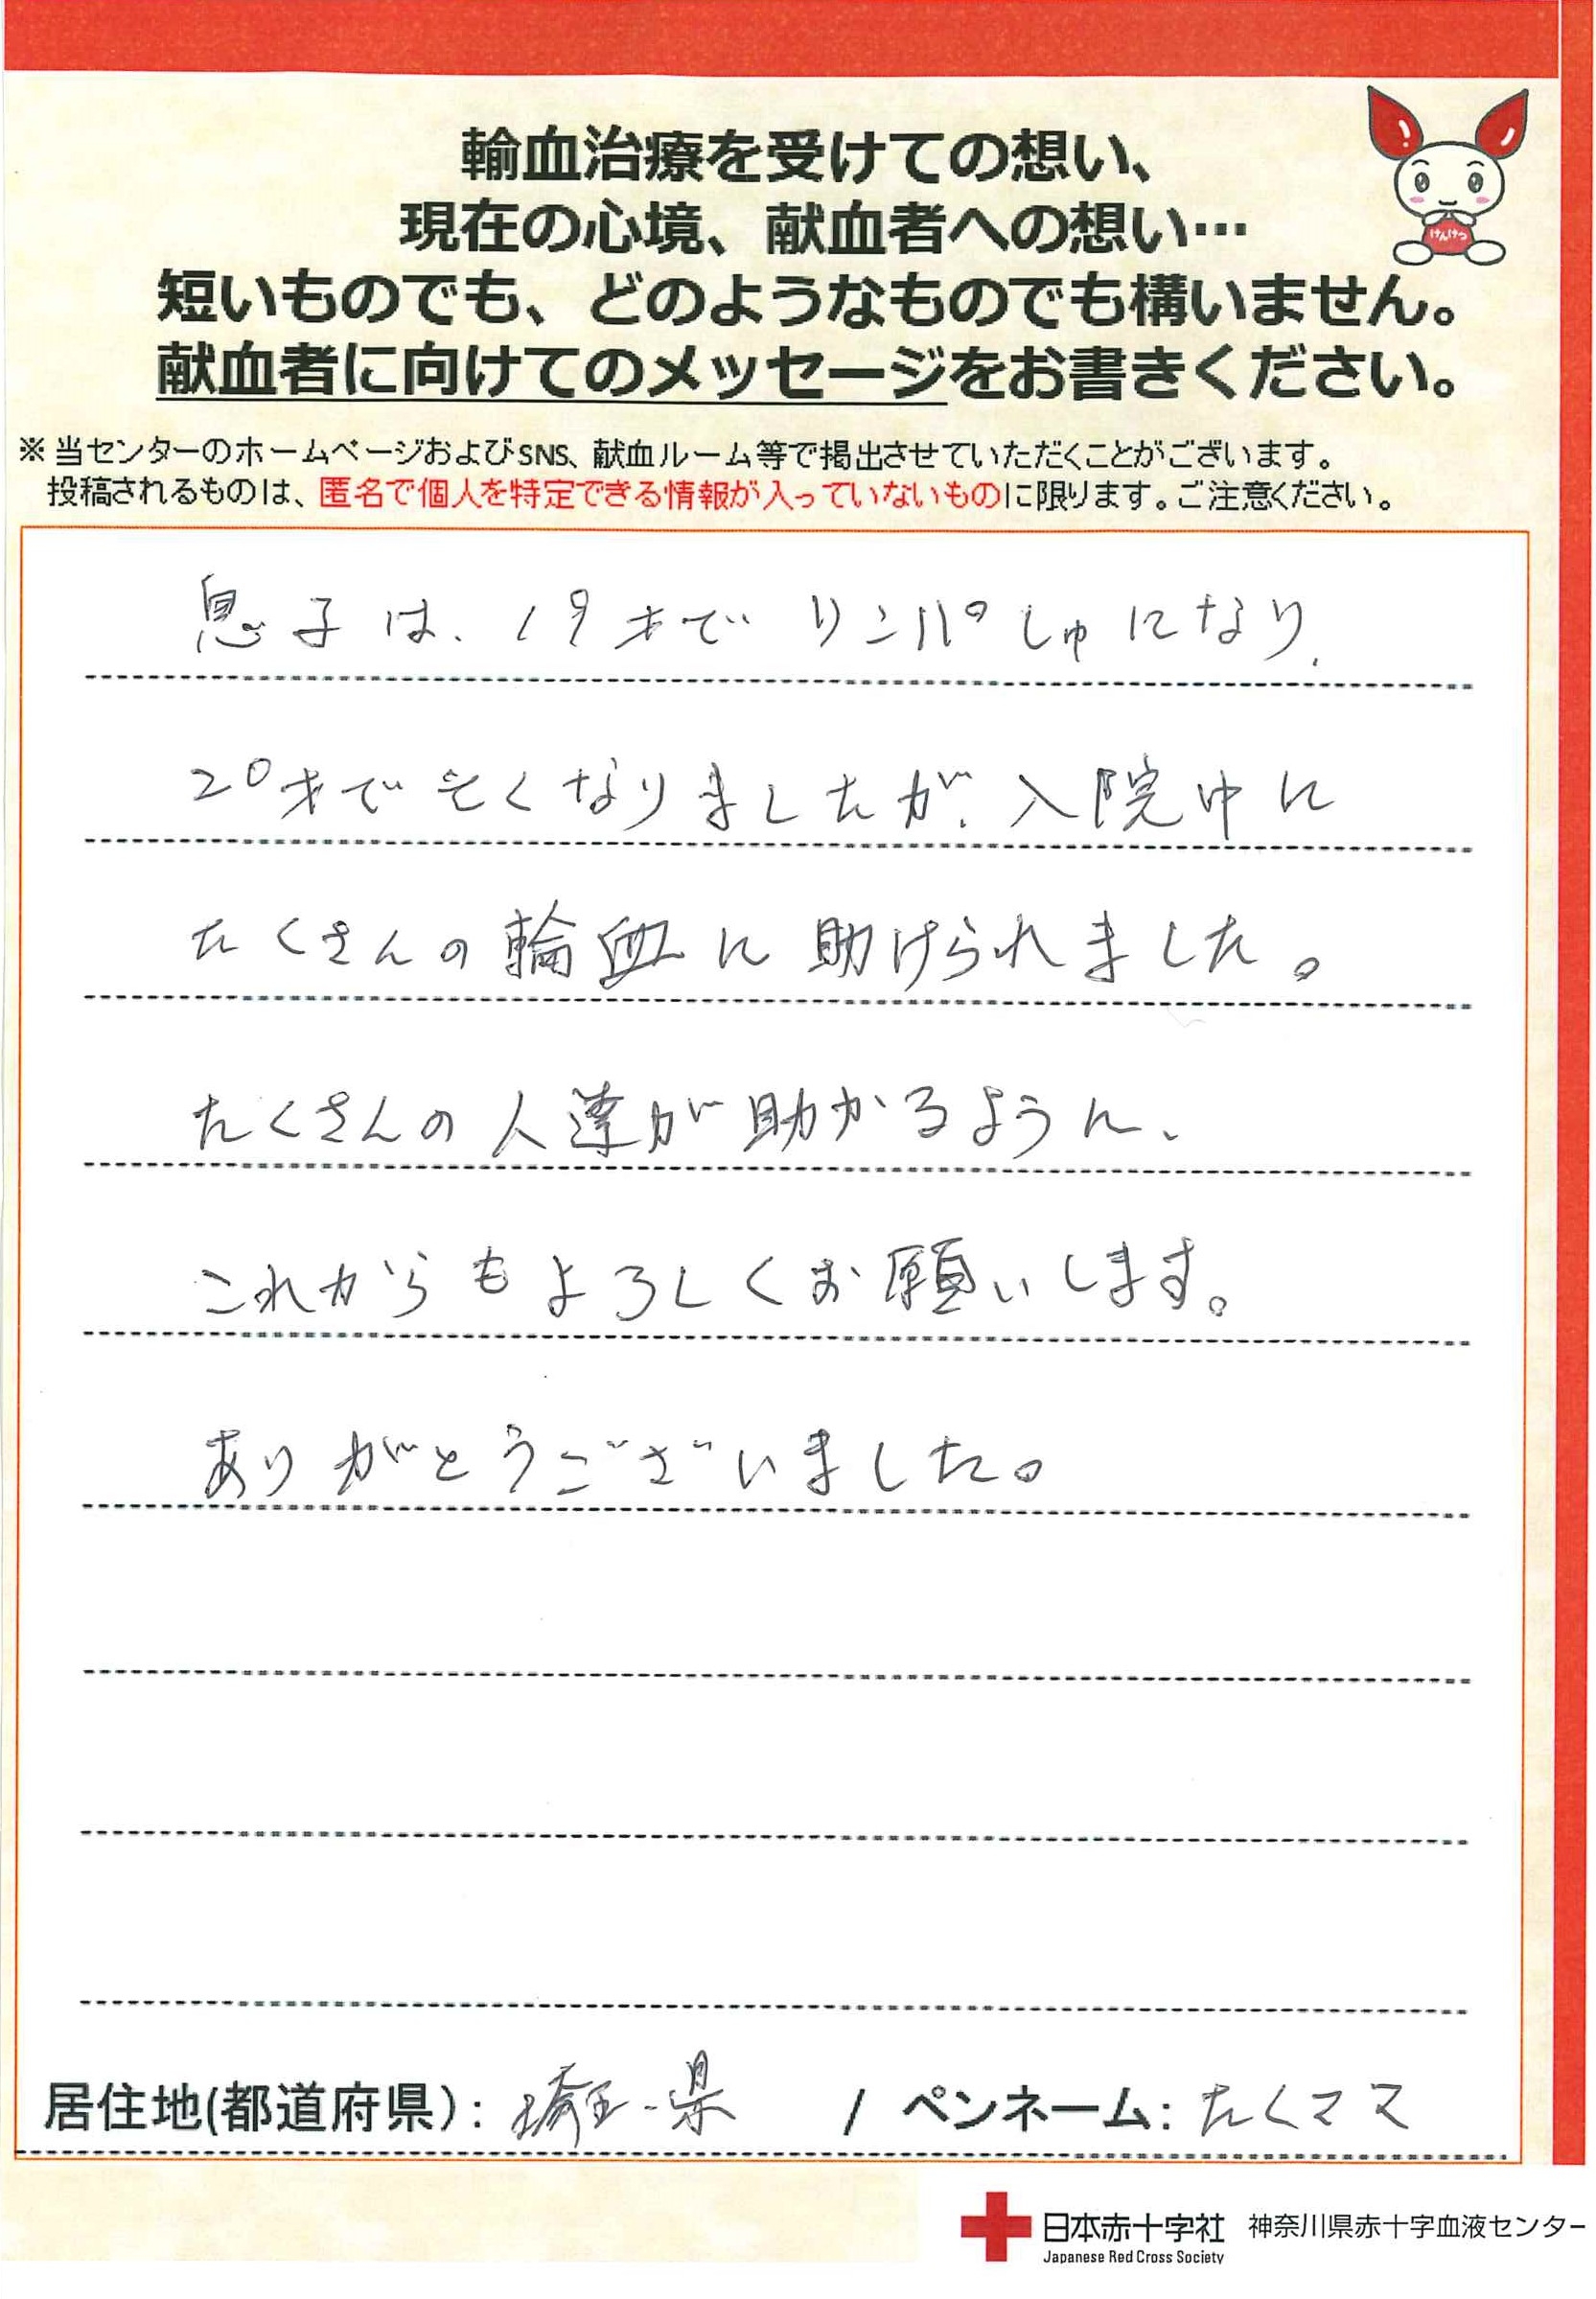 輸血治療を受けての想い、
現在の心境、献血者への想い…
短いものでも、どのようなものでも構いません。
献血者に向けてのメッセージをお書きください。
けんけつ
※当センターのホームページおよびSNS、献血ルーム等で掲出させていただくことがございます。
投稿されるものは、匿名で個人を特定できる情報が入っていないものに限ります。ご注意ください。
息子は、19才でリンパしゅになり、
20才で亡くなりましたが、入院中に
たくさんの輸血に助けられました。
たくさんの人達が助かるように、
これからもよろしくお願いします。
ありがとうございました。
居住地(都道府県)：埼玉県 / ペンネーム：たくママ
日本赤十字社 神奈川県赤十字血液センター
Japanese Red Cross Society